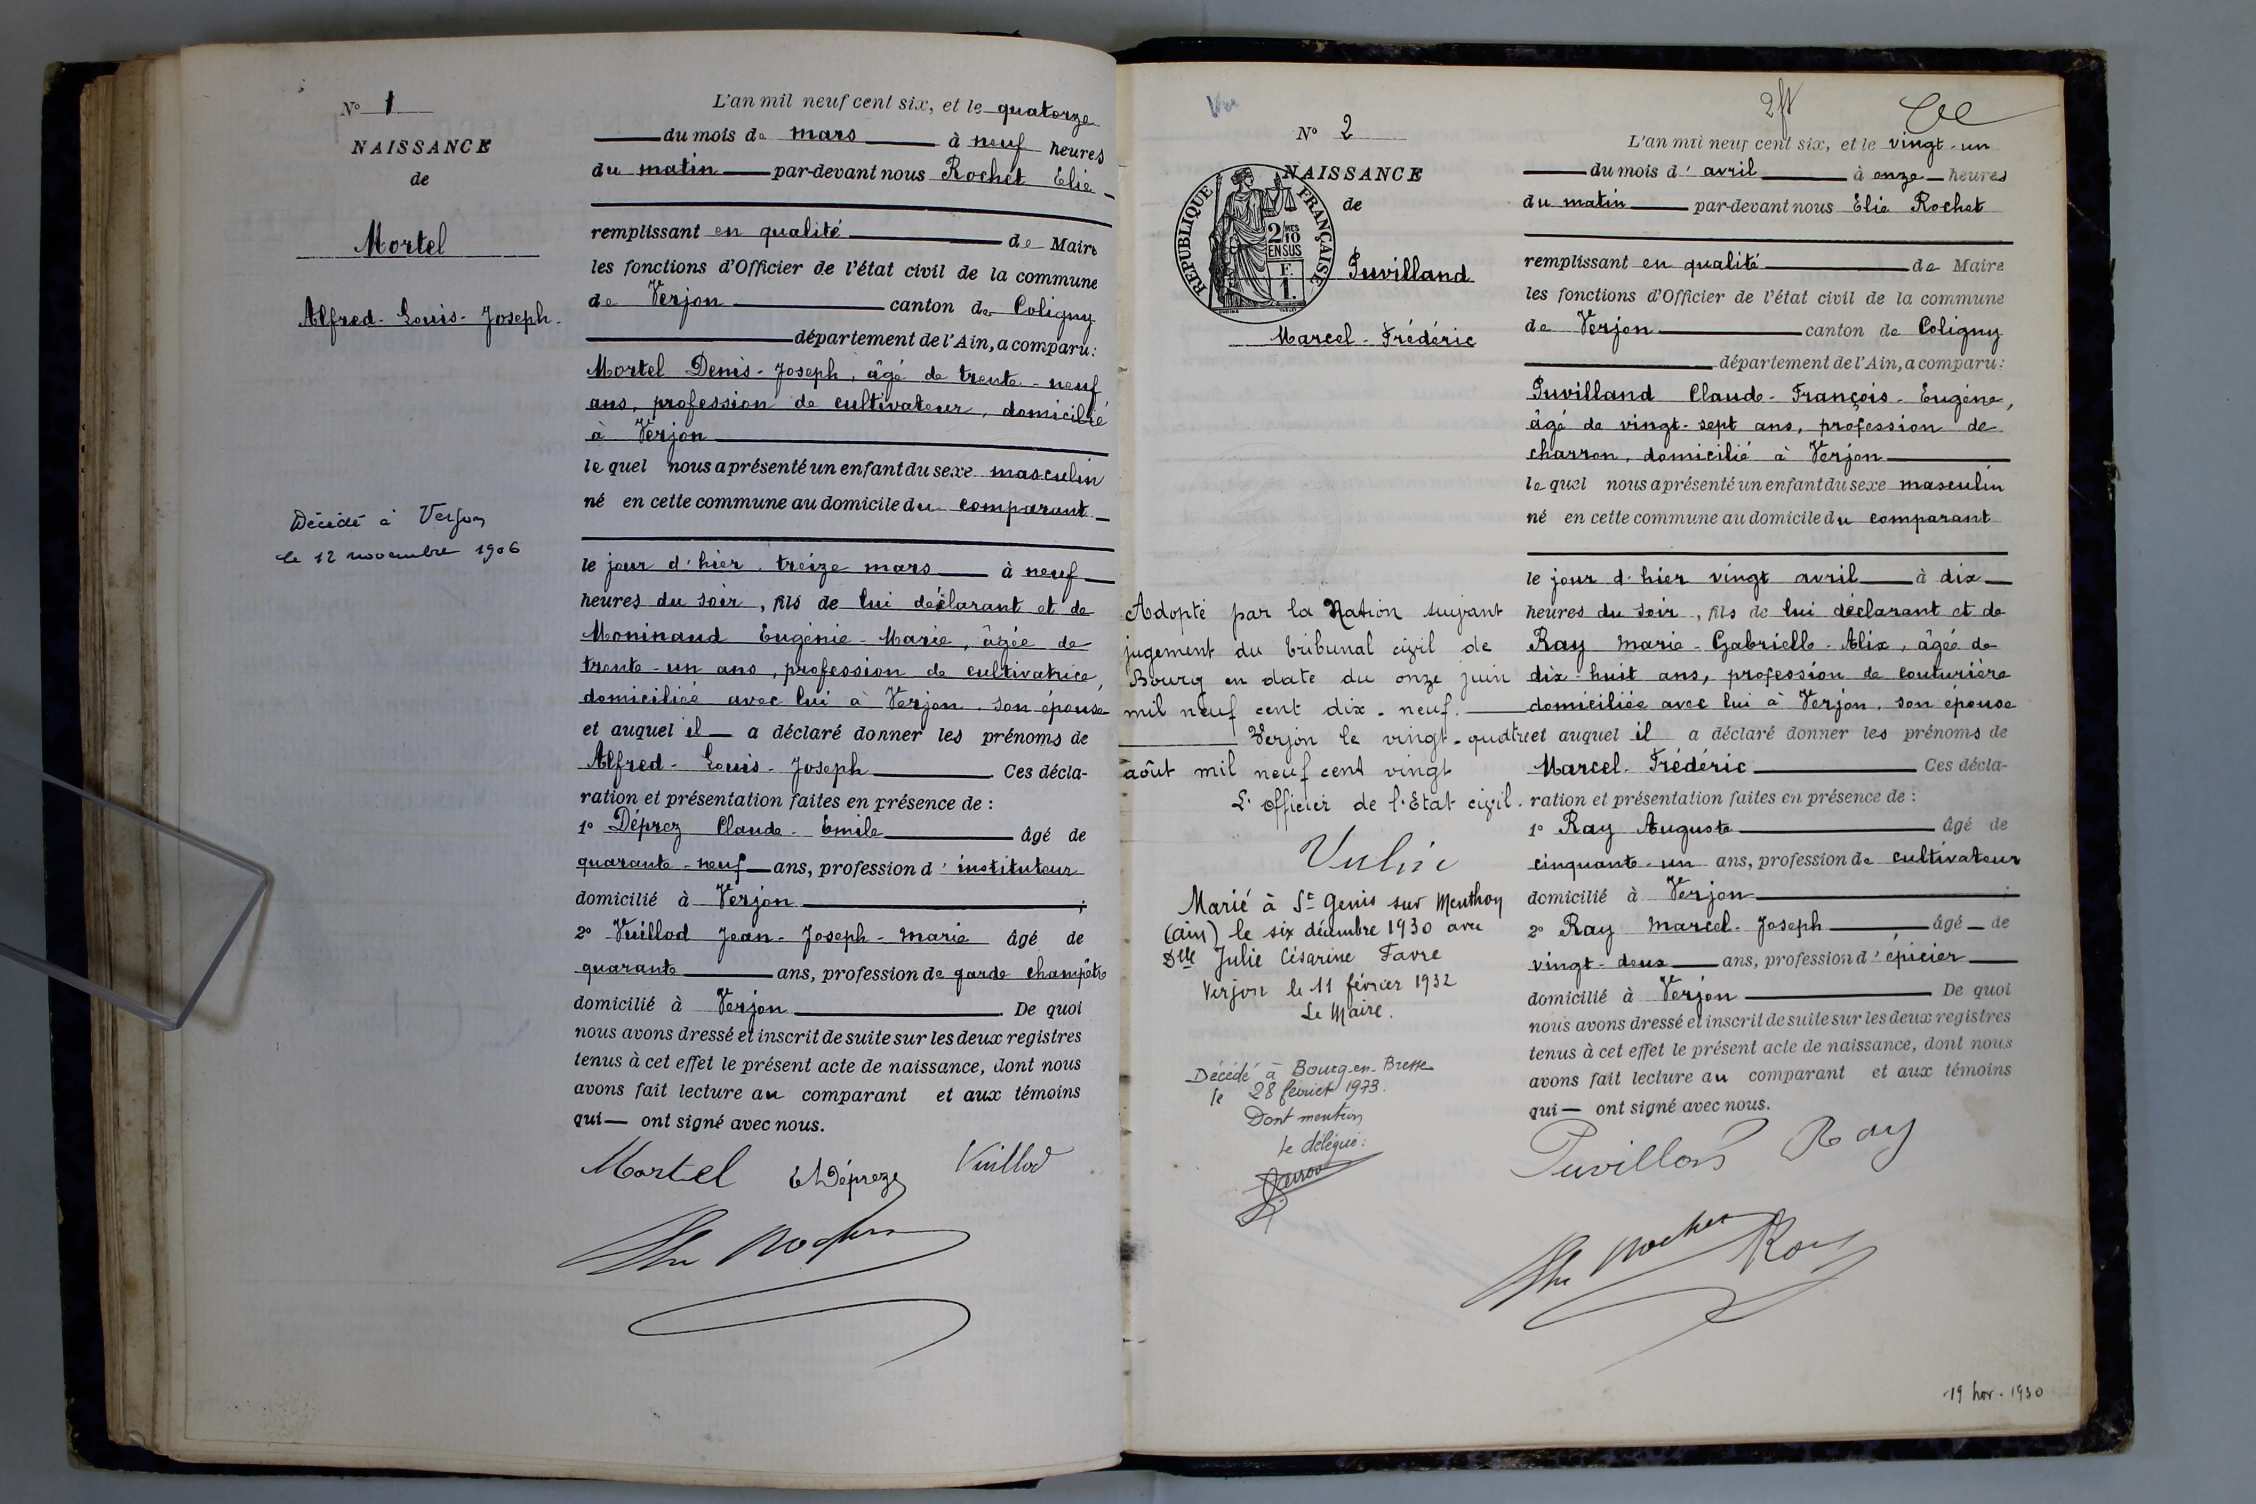 N° 1
NAISSANCE
de
Mortel
Alfred-Louis-Joseph.
Décédé à Verjon
le 12 novembre 1906
L'an mil neuf cent six, et le quatorze
du mois de mars à neuf heures
du matin par-devant nous Rochet Elie
remplissant en qualité de Maire
les fonctions d'Officier de l'état civil de la commune
de Verjon canton de Coligny
département de l'Ain, a comparu:
Mortel Denis-Joseph, âgé de trente-neuf
ans, profession de cultivateur, domicilié
à Verjon
lequel nous a présenté un enfant du sexe masculin
né en cette commune au domicile du comparant
le jour d'hier treize mars à neuf
heures du soir, fils de lui déclarant et de
Moninaud Eugénie-Marie, âgée de
trente-un ans, profession de cultivatrice,
domiciliée avec lui à Verjon, son épouse
et auquel il a déclaré donner les prénoms de
Alfred-Louis-Joseph Ces décla-
ration et présentation faites en présence de:
1° Déprez Claude-Emile âgé de
quarante-neuf ans, profession d'instituteur
domicilié à Verjon ;
2° Vuillod Jean-Joseph-Marie âgé de
quarante ans, profession de garde champêtre
domicilié à Verjon De quoi
nous avons dressé et inscrit de suite sur les deux registres
tenus à cet effet le présent acte de naissance, dont nous
avons fait lecture au comparant et aux témoins
qui ont signé avec nous.
Mortel Déprez Vuillod
Elie Rochet
Vu
N° 2
NAISSANCE
de
RÉPUBLIQUE FRANÇAISE
2/10
EN SUS
F.
1.
Puvilland
Marcel-Frédéric
Adopté par la Nation suivant
jugement du tribunal civil de
Bourg en date du onze juin
mil neuf cent dix-neuf.
Verjon le vingt-quatre
août mil neuf cent vingt
L'officier de l'Etat civil.
Marié à St Genis sur Menthon
(Ain) le six décembre 1930 avec
Dlle Julie Césarine Favre
Verjon le 11 février 1932
Le Maire.
Décédé à Bourg-en-Bresse
le 28 février 1973.
Dont mention
le délégué:
L'an mil neuf cent six, et le vingt-un
du mois d'avril à onze heures
du matin par-devant nous Elie Rochet
remplissant en qualité de Maire
les fonctions d'Officier de l'état civil de la commune
de Verjon canton de Coligny
département de l'Ain, a comparu:
Puvilland Claude-François-Eugène,
âgé de vingt-sept ans, profession de
charron, domicilié à Verjon
lequel nous a présenté un enfant du sexe masculin
né en cette commune au domicile du comparant
le jour d'hier vingt avril à dix
heures du soir, fils de lui déclarant et de
Ray Marie-Gabrielle-Alix, âgée de
dix-huit ans, profession de couturière
domiciliée avec lui à Verjon, son épouse
et auquel il a déclaré donner les prénoms de
Marcel-Frédéric Ces décla-
ration et présentation faites en présence de:
1° Ray Auguste âgé de
cinquante-un ans, profession de cultivateur
domicilié à Verjon ;
2° Ray Marcel-Joseph âgé de
vingt-deux ans, profession d'épicier
domicilié à Verjon De quoi
nous avons dressé et inscrit de suite sur les deux registres
tenus à cet effet le présent acte de naissance, dont nous
avons fait lecture au comparant et aux témoins
qui ont signé avec nous.
Puvilland Ray
Elie Rochet Ray
19 nov. 1930